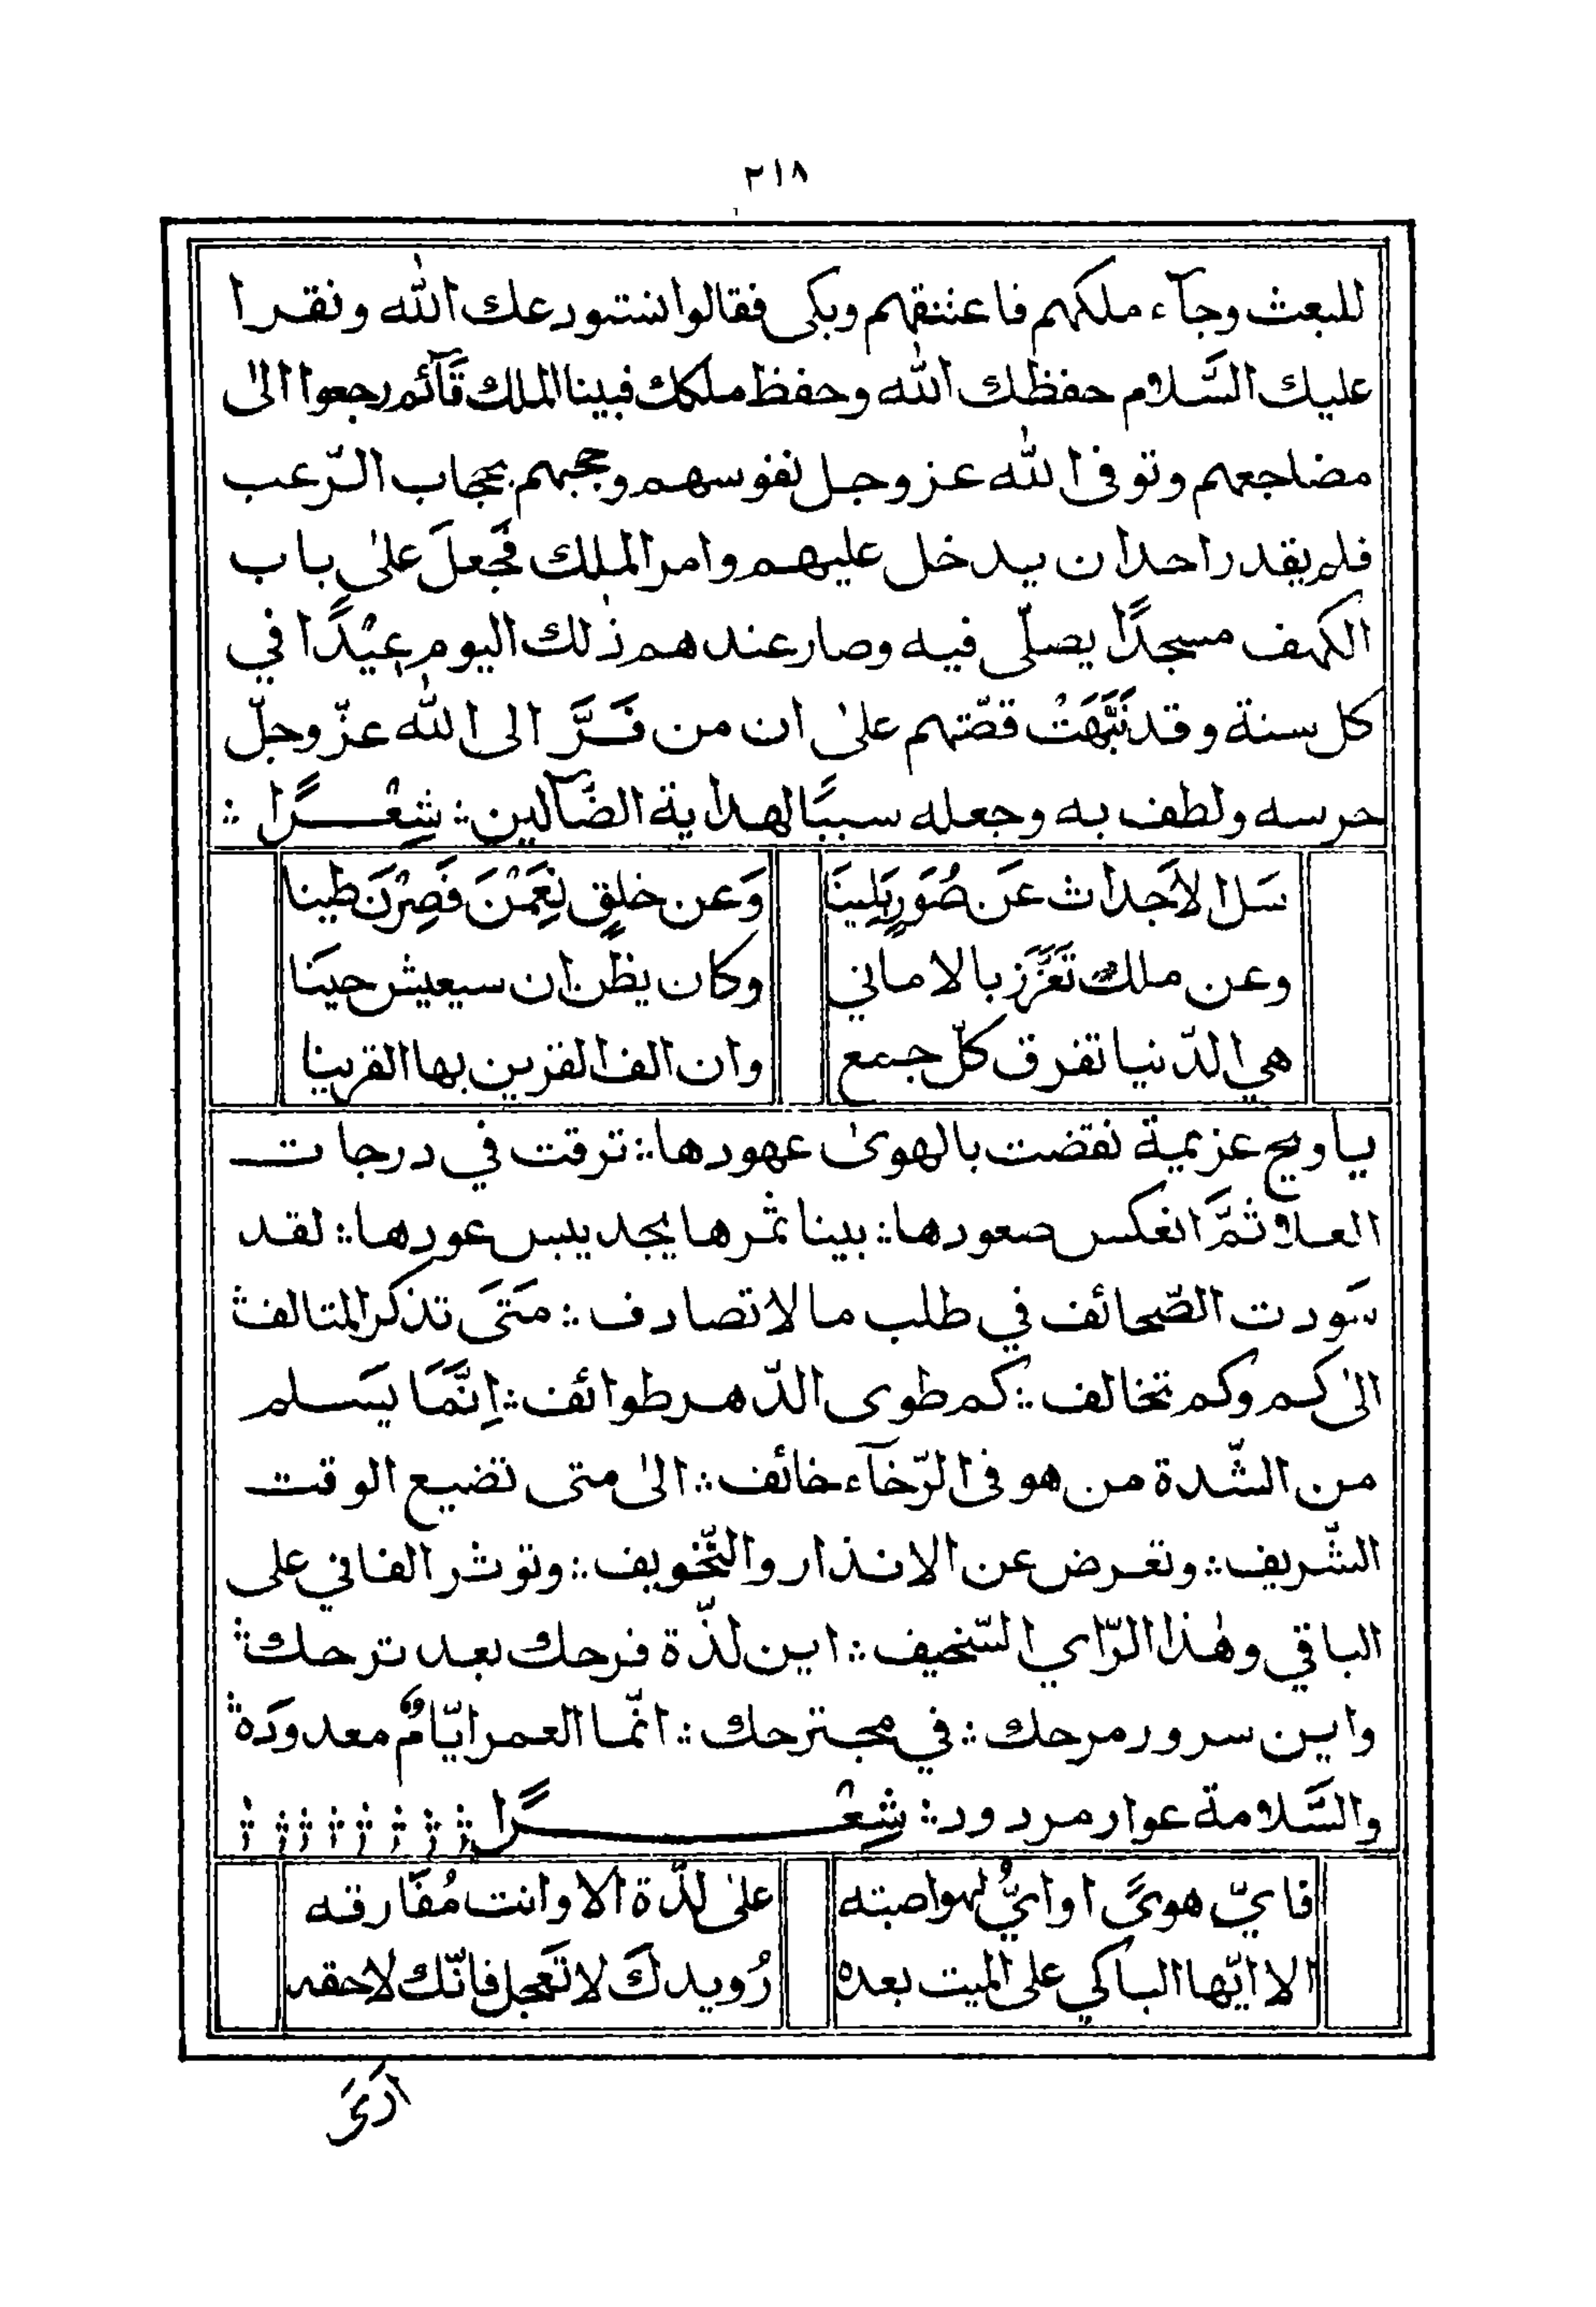 ٢١٨
للبعث وجآء ملكهم فاعتنقهم وبكى فقالوا نستودعك الله ونقرا
عليك السَّلام حفظك الله وحفظ ملكك فبينا الملك قَآئم رجعوا الىٰ
مضاجعهم وتوفى الله عز وجل نفوسهم وحجبهم بحجاب الرّعب
فلم يقدر احد ان يدخل عليهم وامر الملك فجَعلَ علىٰ باب
الكهف مسجدًا يصلّى فيه وصار عندهم ذٰلك اليوم عِيْدًا في
كل سنة وقد نَبَّهَتْ قصّتهم علىٰ ان من فَرَّ الى الله عزّ وجلّ
حرسه ولطف به وجعله سببًا لهداية الضَّآلين ؞ شِعْــرًا ؞
سَل الأَجداث عَن صُوَرٍ بَلِينَا وَعن خلقٍ نَعِمْنَ فَصِرْنَ طينا
وعن ملك تَعَزَّزَ بالاماني وكان يظن ان سيعيش حينَا
هي الدّنيا تفرق كلّ جمع وان الف القرين بها القرينا
يا ويح عزيمة نقضت بالهوىٰ عهودها ؞ ترقت في درجات
العلا ثمَّ انعكس صعودها ؞ بينا ثمرها يجد يبس عودها ؞ لقد
سَودت الصّحائف في طلب ما لا تصادف ؞ مَتَىَ تذكر المتالف ؞
الىٰ كم وكم تخالف ؞ كم طوى الدّهر طوائف ؞ اِنَّمَا يَسلم
من الشّدة من هو فى الرّخآء خائف ؞ الىٰ متى تضيع الوقت
الشّريف ؞ وتعرض عن الانذار والتّخويف ؞ وتوثر الفاني على
الباقي وهٰذا الرّاي السّخيف ؞ اين لذّة فرحك بعد ترحك ؞
واين سرور مرحك ؞ في مجترحك ؞ انّما العمر ايّامٌ معدودَة ؞
والسَّلامة عوار مردود ؞ شِعْــرًا ؞ ؞ ؞ ؞ ؞ ؞ ؞ ؞
فايّ هوىً او ايُّ لهو اصبته علىٰ لذّة الا وانت مُفَارقه
الا ايّها الباكي على الميت بعده رُويدكَ لا تَعجل فانّك لاحقه
ارَىَ